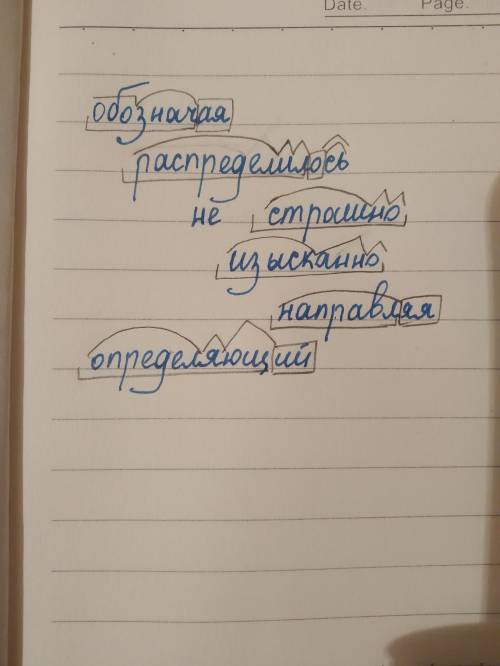 Date. Page.
обозначая
распределилось
не страшно
изысканно
направляя
определяющий